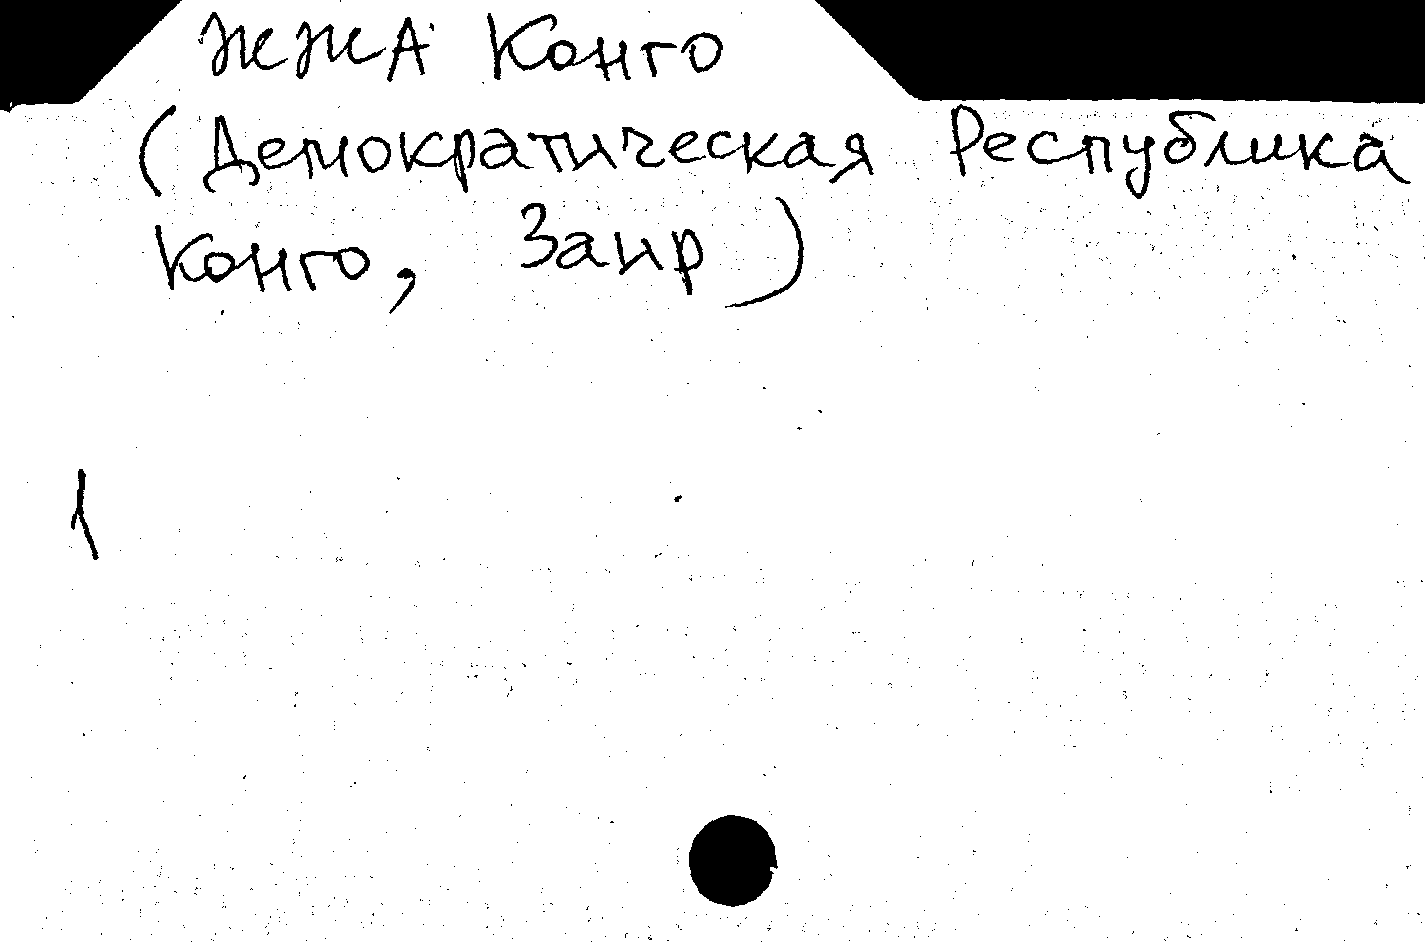 ЖЖА Конго
(Демократическая Республика
Конго, Заир)